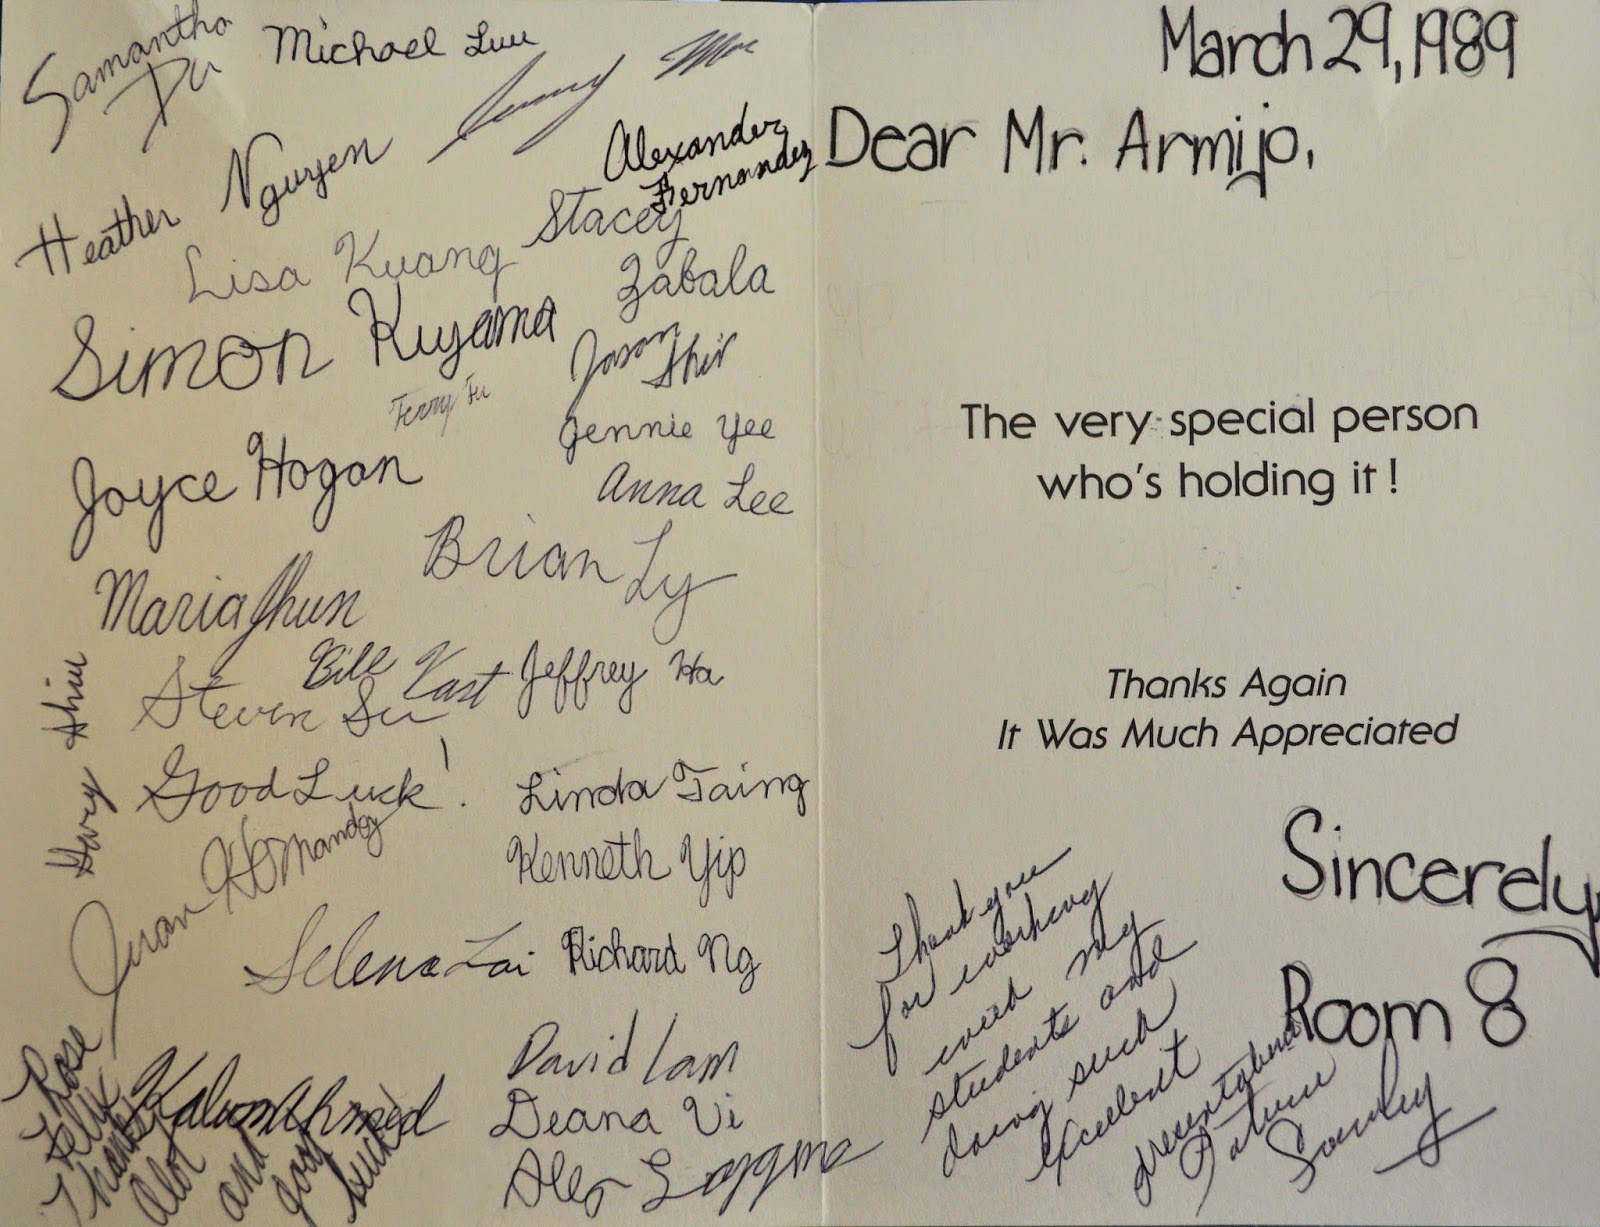 Samantha
Du
Michael Luu
Heather Nguyen
Alexander
Fernandez
Lisa Kuang
Stacey
Zabala
Simon Kuyama
Jason
Shir
Terry Fu
Jennie Yee
Joyce Hogan
Anna Lee
Brian Ly
Maria Jhun
Bill Kast
Jeffrey Ha
Steven Su
Good Luck!
Linda Taing
Kenneth Yip
Juan Hernandez
Selena Lai
Richard Ng
David Lam
Ahmed
Deana Vi
Rose
Felix
Thanks
alot
and
good
luck!
March 29, 1989
Dear Mr. Armijo,
The very special person
who's holding it!
Thanks Again
It Was Much Appreciated
Sincerely,
Room 8
Thank you
for working
with my
students and
doing such
excellent